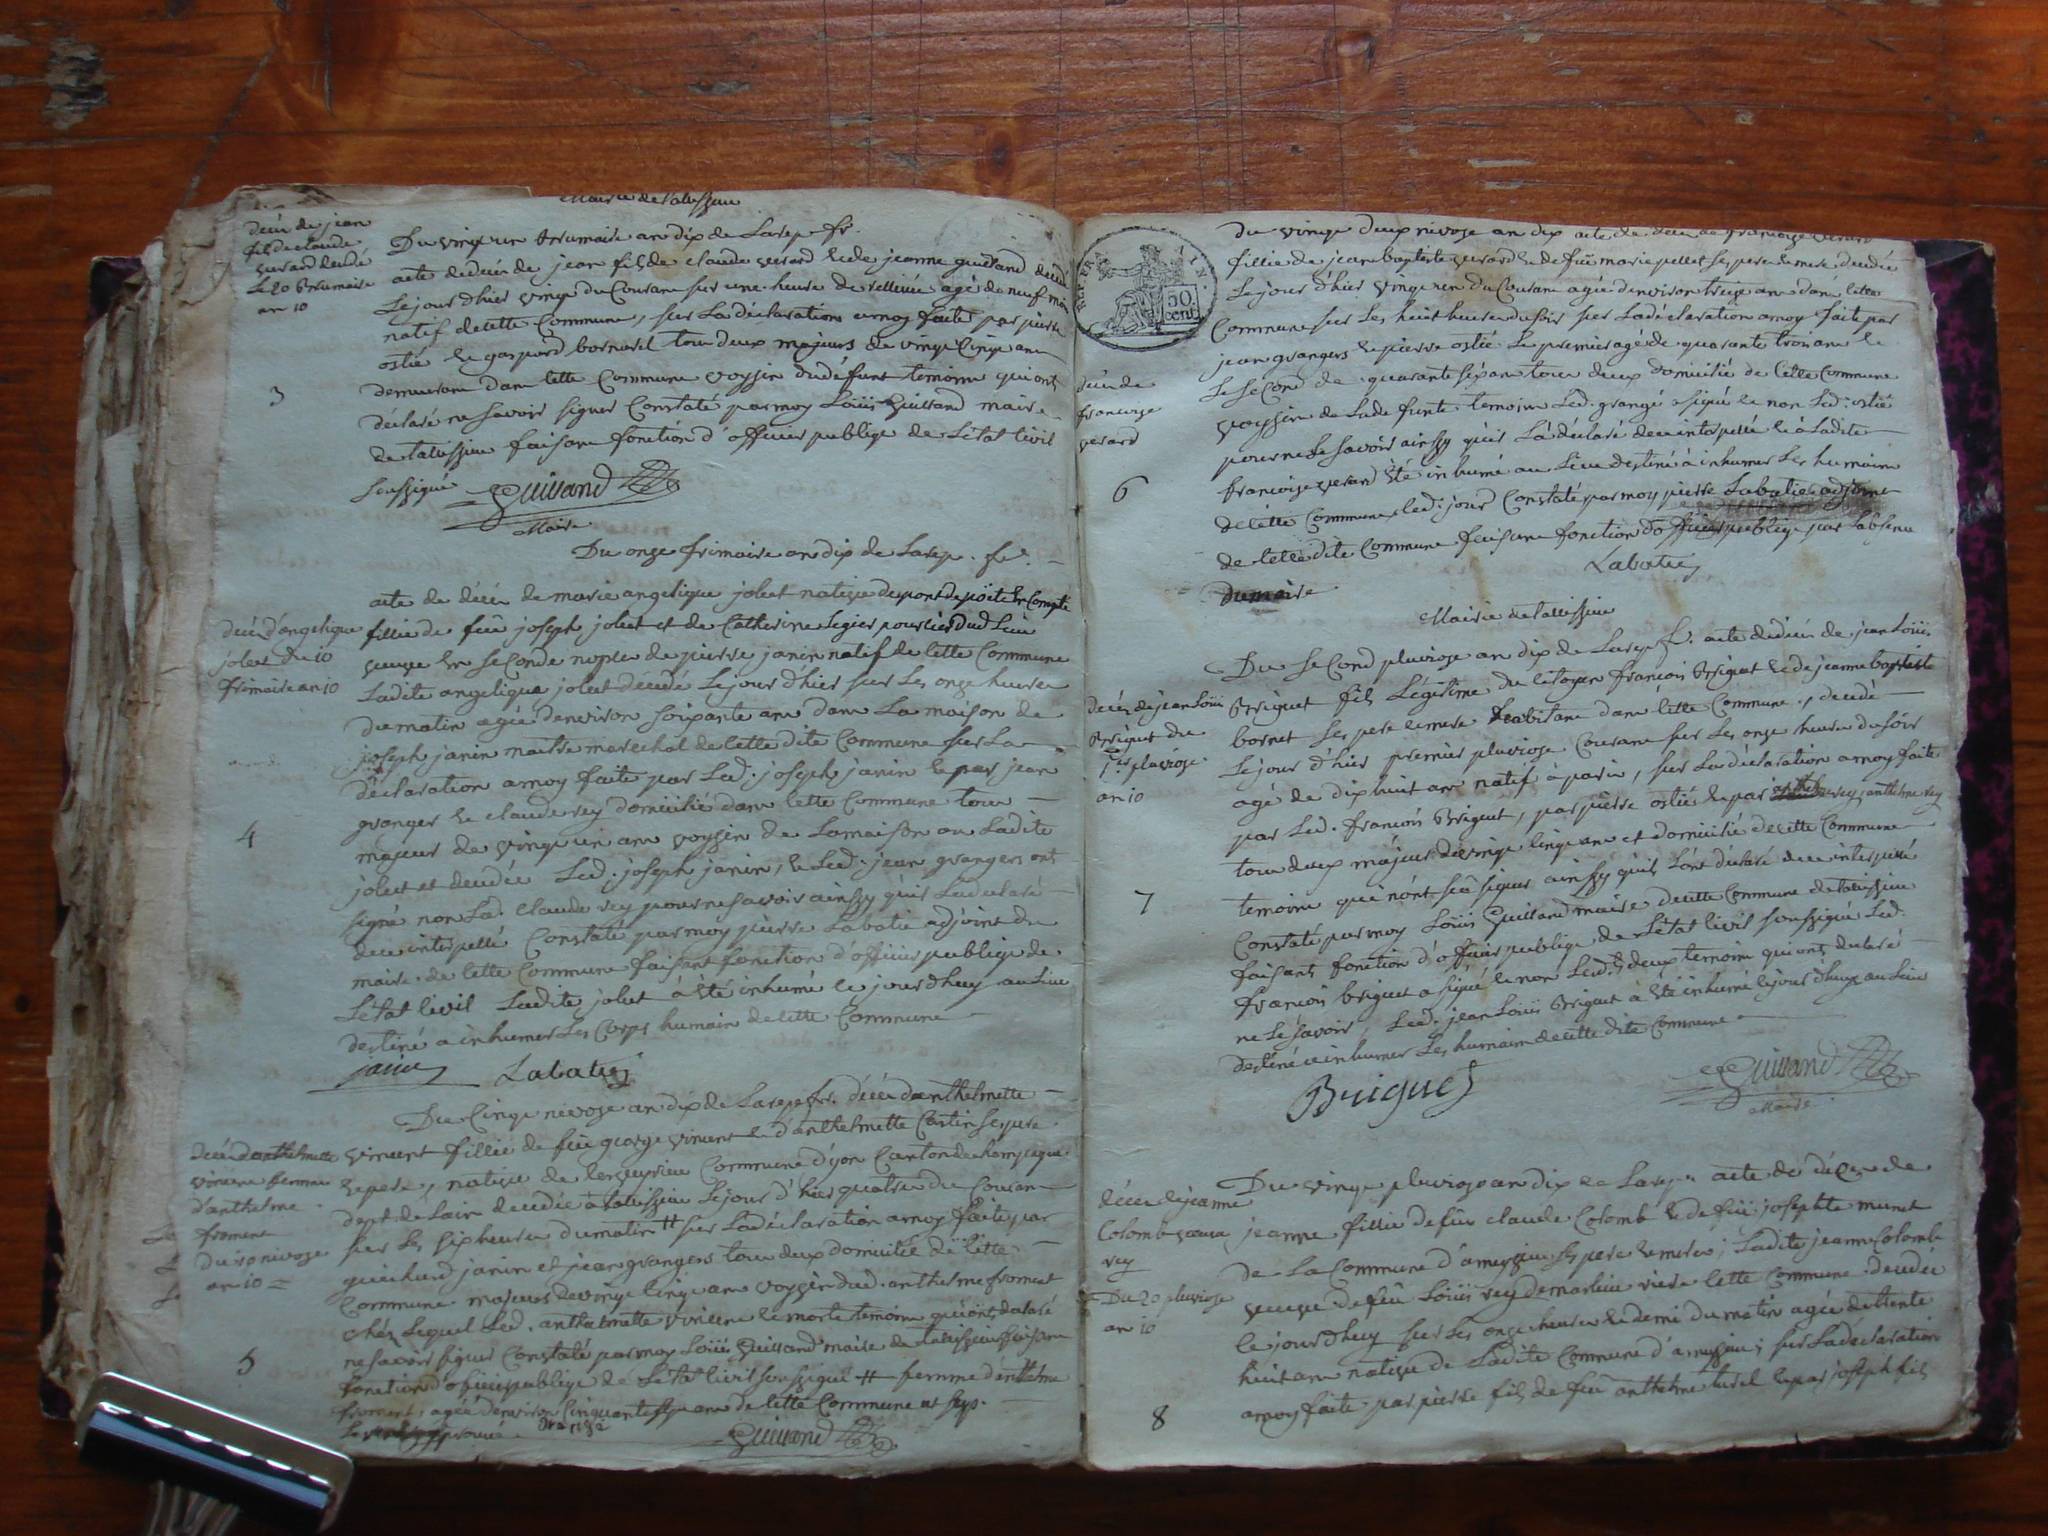 Mairie de Talissieu
décès de jean
fils de claude
gerard decedé
le 20 Brumaire
an 10
3
Du vingt un Brumaire an dix de La rep. fr.
acte de décès de jean fils de claude gerard et de jeanne guilland decedé
le jour d'hier vingt du Courant sur une heure de rellevée agé de neuf mois
natif de cette Commune, sur La déclaration a moy faite par pierre
ostié et gaspard bornarel tous deux majeurs de vingt Cinq ans
demeurant dans cette Commune voyzin du défunt temoins qui ont
déclaré ne savoir signer Constaté par moy Loüis Guilland maire
de talissieu faisant fonction d'officier publique de L'état Civil
soussigné Guilland
Maire
Du onze frimaire an dix de La rep. fr.
décès d'angelique
joleet du 10
frimaire an 10
4
acte de décès de marie angelique joleet natige
fillie de feu joseph joleet et de Catherine
veuve en seconde noples de pierre janin natif de cette Commune
Ladite angelique joleet decedé Le jour d'hier sur Les onze heures
du matin agée d'environ soixante ans dans La maison de
joseph janin maitre marechal de cette dite Commune sur La
déclaration a moy faite par Led. joseph janin et par jean
granger et claude rey domicilié dans cette Commune tous
majeur de vingt un ans voyzin de La maison ou Ladite
joleet et decedée Led. joseph janin, et Led. jean grangers ont
signé non Led. claude rey pour ne savoir ainssy qu'il La declaré
de ce interpellé Constaté par moy pierre Labatie adjoint du
maire de cette Commune faisant fonction d'officier publique de
L'état Civil Ladite joleet à été inhumé ce jour d'huy au Lieu
destiné a inhumer Les Corps humain de cette Commune
janin Labatie
Du Cinq nivoze an dix de La rep. fr. décès d'anthelmette
décès d'anthelmette
vincent femme
d'anthelme
froment
nivoze
an 10
5
vincent fillie de feu george vincent et d'anthelmette
et pere, natige de Commune d'yon Canton de
dept de Lain decedée à talissieu Le jour d'hier quatre du Courant
sur Les six heures du matin # sur La déclaration a moy faite par
guichard janin et jean grangers tous deux domicilié de Cette
Commune majeurs de vingt Cinq ans voyzin dud. anthelme froment
chéz Lequel Led. anthelmette vincent et morte temoins qui ont declaré
ne savoir signer Constaté par moy Loüis Guilland maire de talissieu faisant
fonction d'officier publique de L'état Civil soussigné # femme d'anthelme
froment, agée d'environ Cinquante ans de cette Commune
Guilland
50
cent
Du vingt deux nivoze an dix acte de deces de francoize gerard
fillie de jean baptiste gerard et de feu marie pellet ses pere et mere decedée
Le jour d'hier vingt un du Courant agée d'environ treize ans dans cette
Commune sur Les huit heures du soir sur La déclaration a moy faite par
jean grangers et pierre ostié Le premier agé de quarante trois ans et
Le second de quarante six ans tous deux domicilié de Cette Commune
voyzin de La defunte temoins Led. grangé a signé et non Led. ostié
pour ne Le savoir ainssy qu'il L'a déclaré de ce interpellé et a Ladite
francoize gerard été inhumé au Lieu destiné à inhumer Les humains
de cette Commune led. jour Constaté par moy pierre Labatie adjoint
de cette dite Commune faisant fonction d'officier publique par L'absence
du maire
Labatie
décès de
francoize
gerard
6
Mairie de talissieu
décès de jean Loüis
Briguet du
1er pluvioze
an 10
7
Du second pluvioze an dix de La rep. fr. acte de décès de jean Loüis
Briguet fils Légitime du Citoyen francois Briguet et de jeanne baptiste
bornet ses pere et mere habitant dans Cette Commune, decedé
Le jour d'hier premier pluvioze Courant sur Les onze heures du soir
agé de dix huit ans natif à paris, sur La déclaration a moy faite
par Led. francois Briguet, par pierre ostié et par anthelme rey
tous deux majeur de vingt Cinq ans et domicilié de cette Commune
temoins qui n'ont sçû signer ainssy qu'ils L'ont declaré de ce interpellé
Constaté par moy Loüis Guilland maire de cette Commune de talissieu
faisant fonction d'officier publique de L'état Civil soussigné Led.
francois briguet a signé et non Lesd. deux temoins qui ont declaré
ne Le savoir, Led. jean Loüis Briguet à été inhumé Le jour d'huy au Lieu
destiné a inhumer Les humains de cette dite Commune
Briguet
Guilland
Maire
décès de jeanne
Colomb veuve
rey
Du 20 pluvioze
an 10
8
Du vingt pluvioze an dix de La rep. acte de décès de
jeanne fillie de feu claude Colomb et de feu josephte munet
de La Commune d'ameyzieu ses pere et mere; Ladite jeanne Colomb
veuve de feu Loüis rey demartieu riere cette Commune decedée
Le jour d'huy sur Les onze heures et demi du matin agée de trente
huit ans natige de Ladite Commune d'ameyzieu; sur La déclaration
a moy faite par pierre fils de feu anthelme turel et par joseph fils